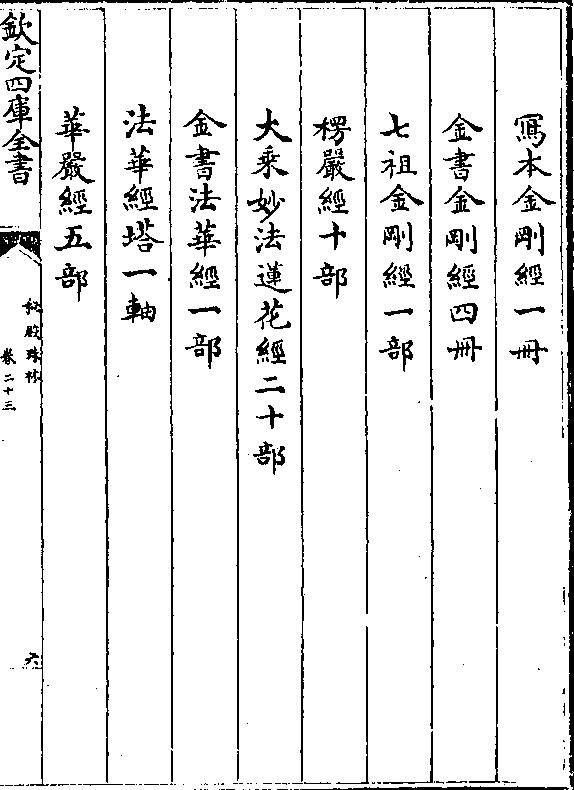 寫本金剛經一冊
金書金剛經四冊
七祖金剛經一部
楞嚴經十部
大乘妙法蓮花經二十部
金書法華經一部
法華經塔一軸
華嚴經五部
欽定四庫全書
秘殿珠林
卷二十三
六